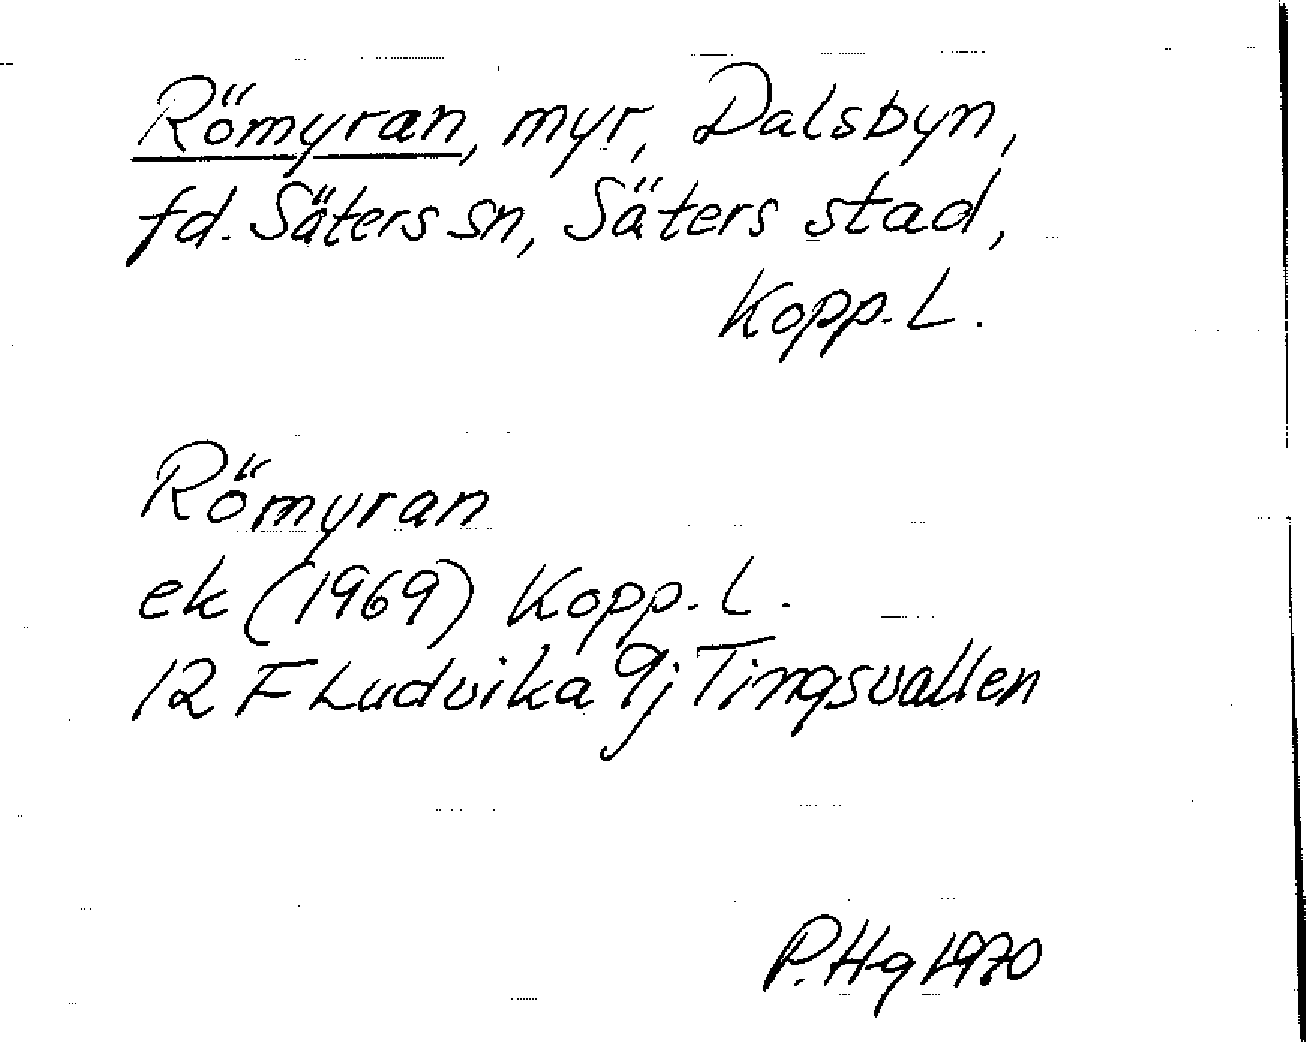 Römyran, myr, Dalsbyn,
fd. Säters sn, Säters stad,
Kopp. L.
Römyran
ek (1969) Kopp. L.
12 F Ludvika 9j Tingsvallen
P. Hg 1970